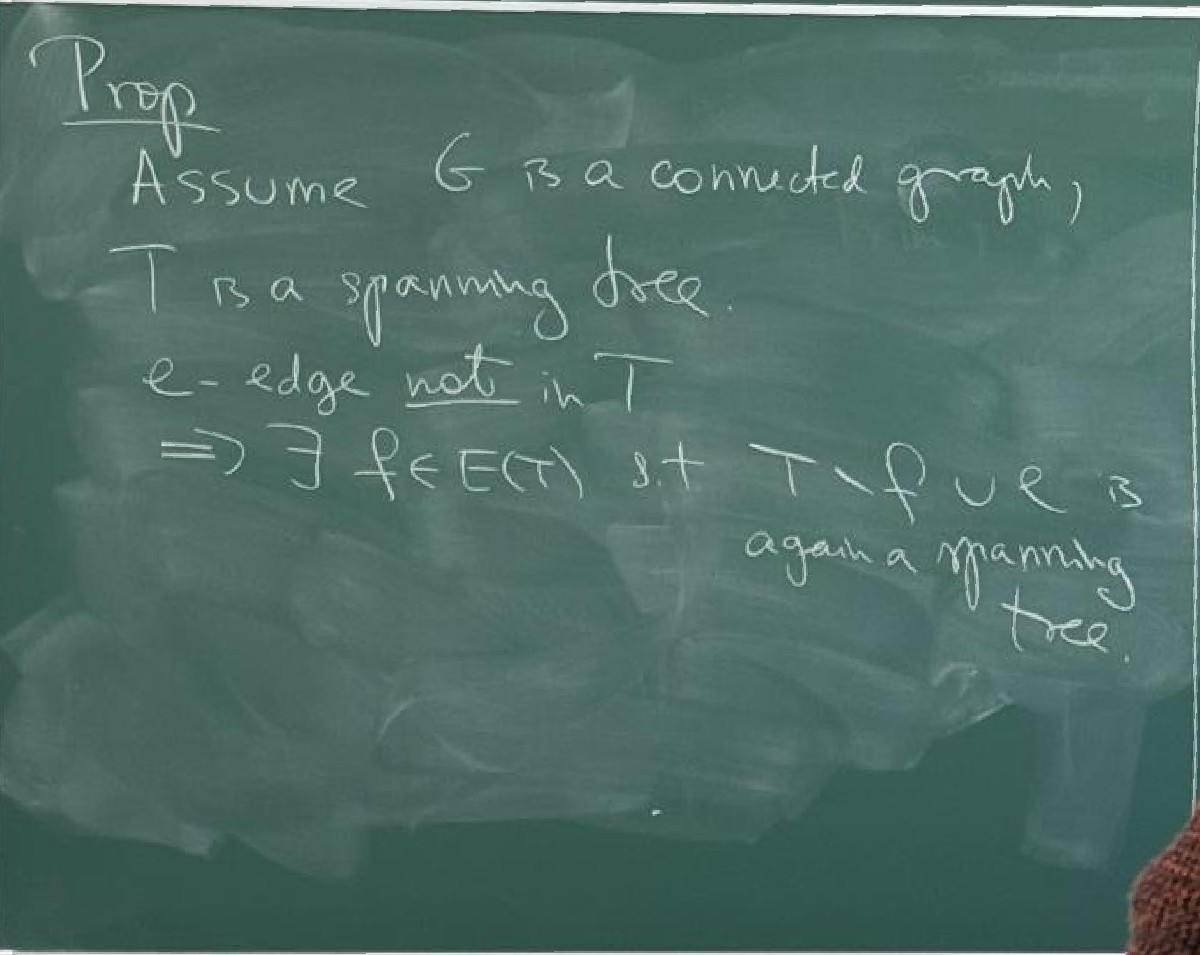 Prop
Assume G is a connected graph,
T is a spanning tree.
e - edge not in T
⇒ ∃ f ∈ E(T) s.t T \ f ∪ e is
again a spanning
tree.